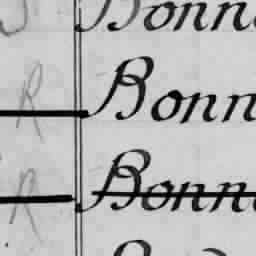 Bonn
R Bonn
R Bonn